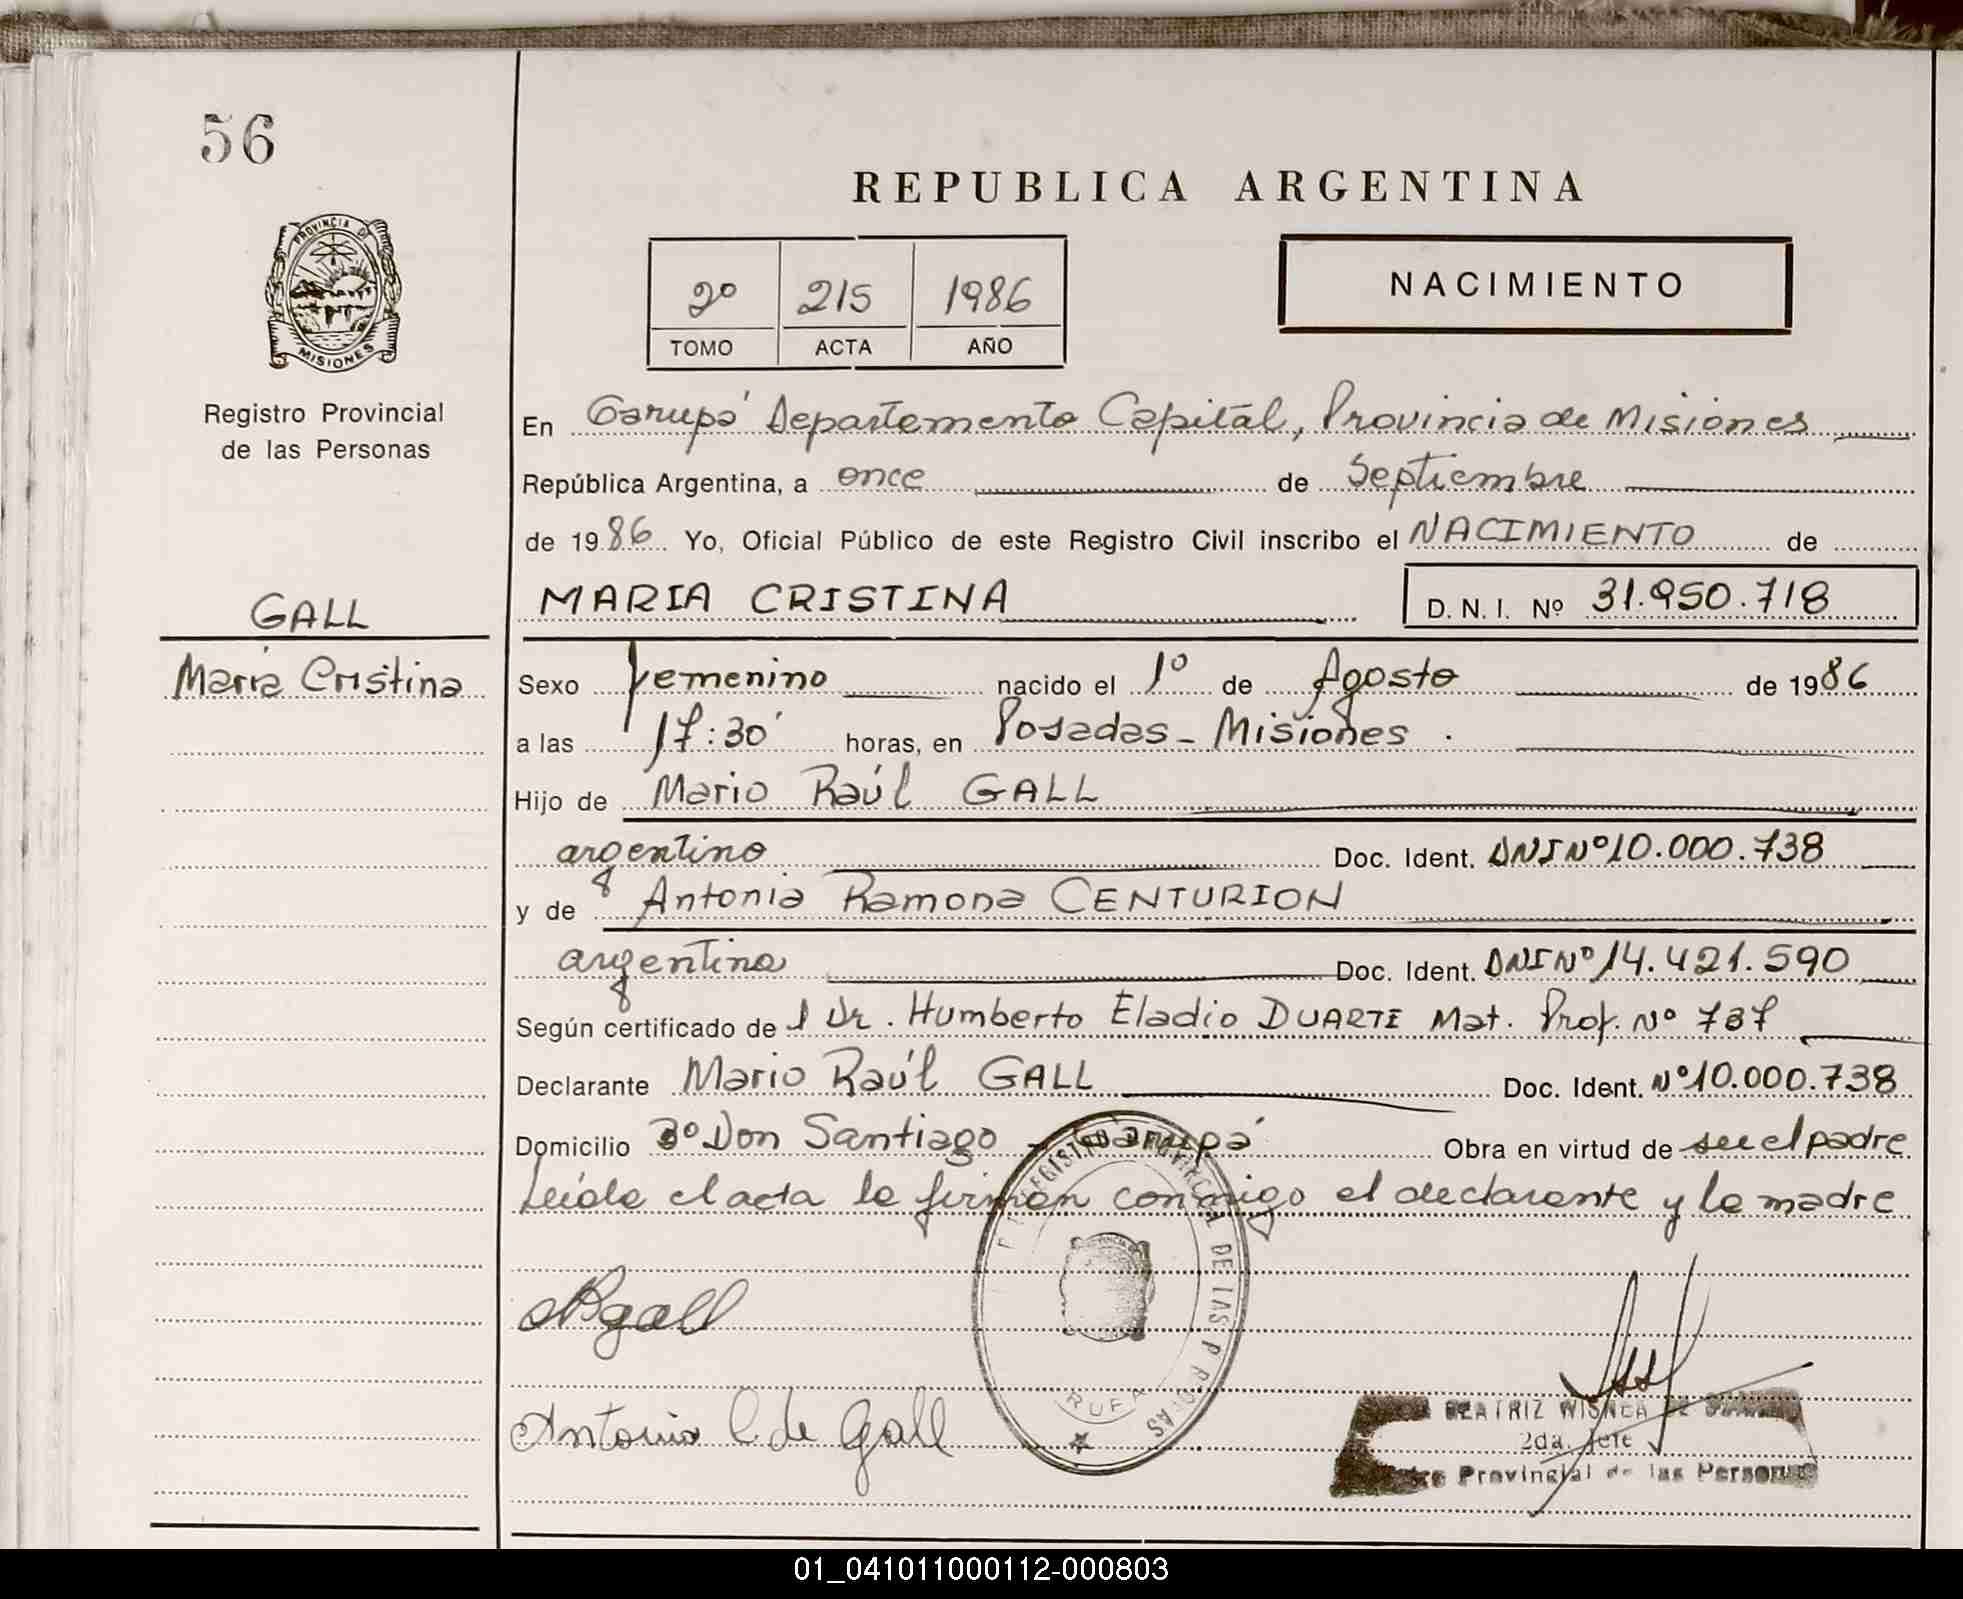 56
REPUBLICA ARGENTINA
PROVINCIA DE
MISIONES
2º 215 1986
TOMO ACTA AÑO
NACIMIENTO
Registro Provincial
de las Personas
En Garupá Departamento Capital, Provincia de Misiones
República Argentina, a once de Septiembre
de 1986 Yo, Oficial Público de este Registro Civil inscribo el NACIMIENTO de
MARIA CRISTINA D. N. I. Nº 31.950.718
GALL
María Cristina
Sexo femenino nacido el 1º de Agosto de 1986
a las 17:30 horas, en Posadas - Misiones.
Hijo de Mario Raúl GALL
argentino Doc. Ident. DNI Nº 10.000.738
y de Antonia Ramona CENTURION
argentina Doc. Ident. DNI Nº 14.421.590
Según certificado de l Dr. Humberto Eladio DUARTE Mat. Prof. Nº 737
Declarante Mario Raúl GALL Doc. Ident. Nº 10.000.738
Domicilio Bº Don Santiago - Garupá Obra en virtud de ser el padre
Leída el acta la firman conmigo el declarante y la madre
REGISTRO PROVINCIAL DE LAS P
MRgall
Antonia C de Gall
BEATRIZ
2da. Jefe
Provincial de las Personas
01_041011000112-000803